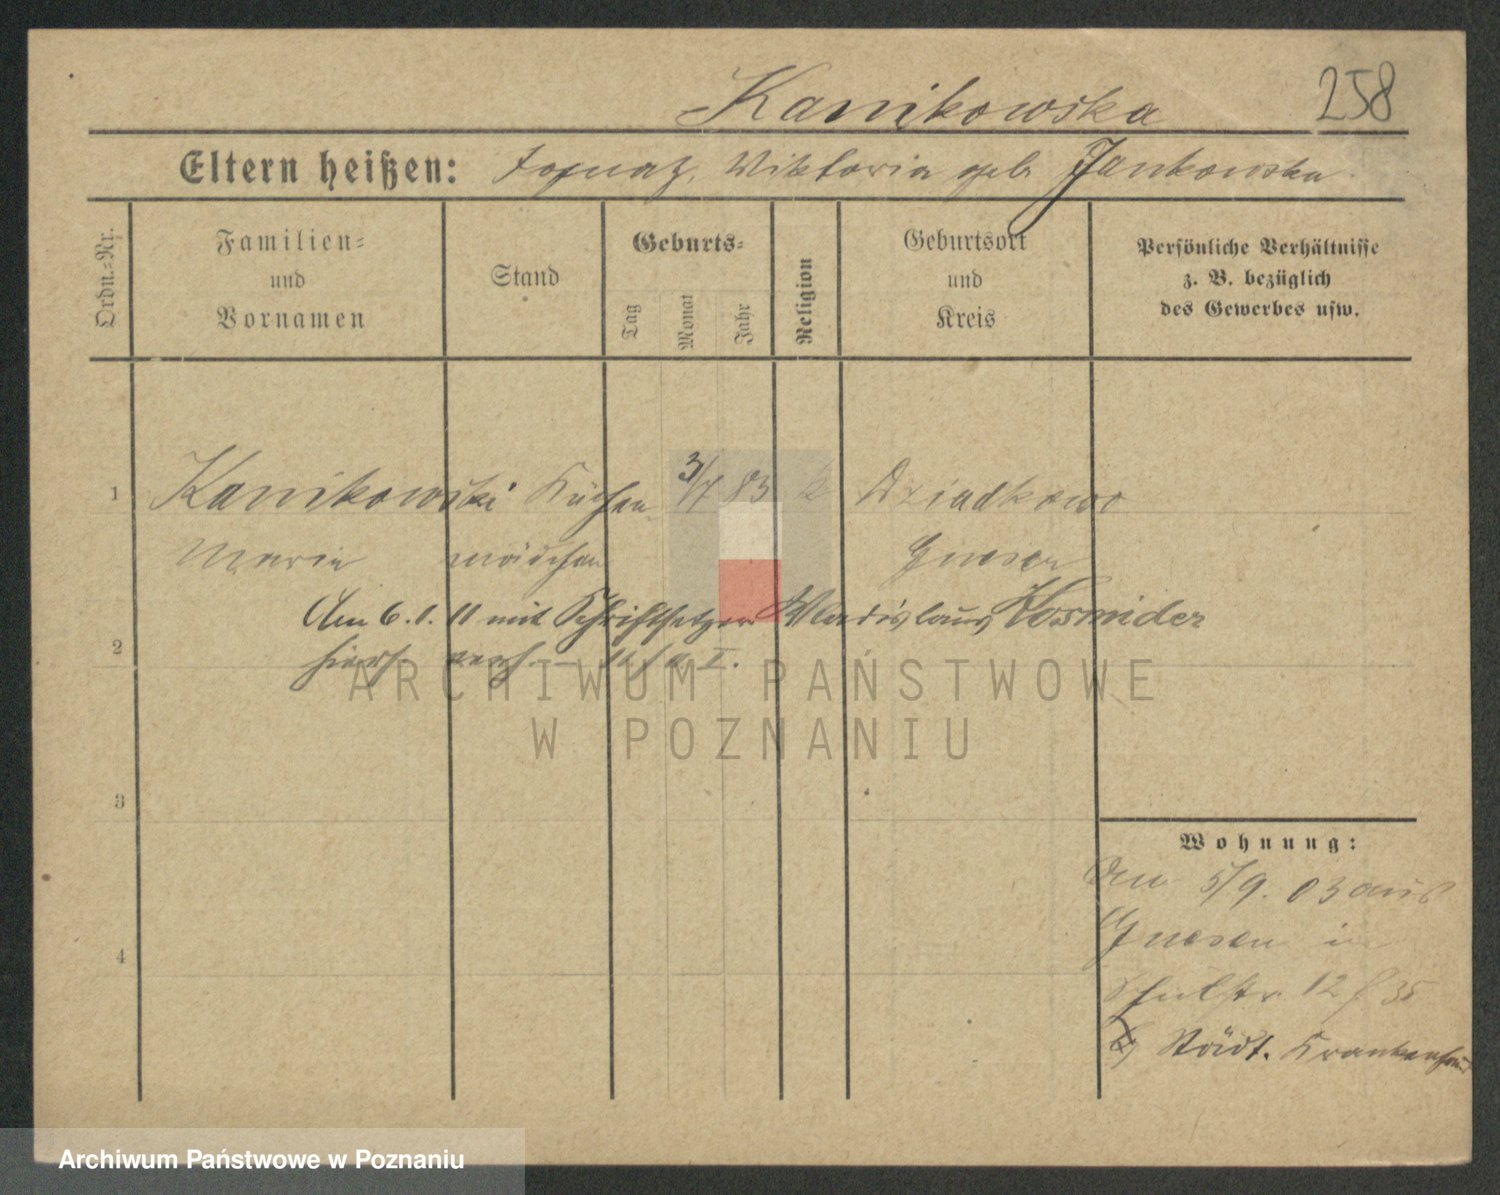 Kanikowska 258
Eltern heißen: Ignatz, Wiktoria geb Jankowska
Ordn.=Nr.
Familien=
und
Vornamen
Stand
Geburts=
Tag
Monat
Jahr
Religion
Geburtsort
und
Kreis
Persönliche Verhältnisse
z. B. bezüglich
des Gewerbes usw.
1 Kanikowski Küchen 3/7 83 k Dziadkowo
Marie mädchen Gnesen
Am 6. 1. 11 mit Schriftsetzer Wladislaus Kosmider
2 hiers. verh.
ARCHIWUM PAŃSTWOWE
W POZNANIU
3
Wohnung:
Den 5/9. 03 aus
4 Gnesen in
Schulstr. 12 35
Städt. Krankenhaus
Archiwum Państwowe w Poznaniu